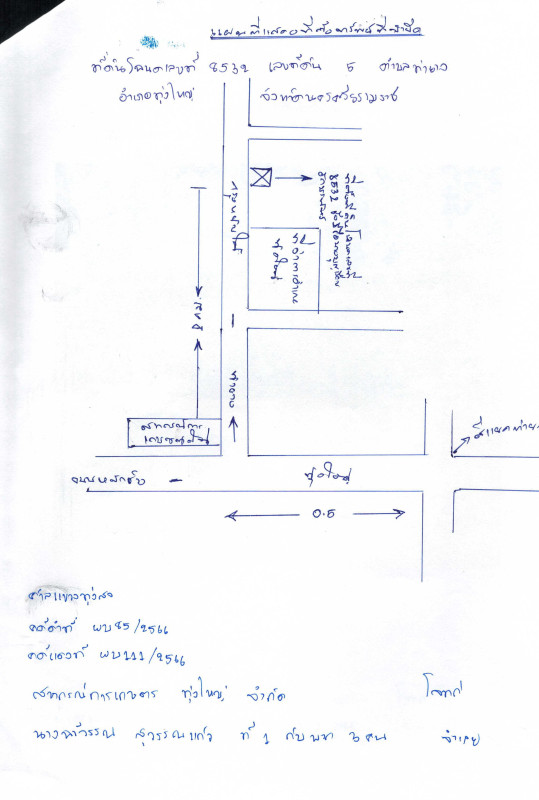 แผนที่แสดงที่ตั้งทรัพย์ที่นำยึด
ที่ดินโฉนดเลขที่ 8532 เลขที่ดิน 5 ตำบลท่ายาง
อำเภอทุ่งใหญ่ จังหวัดนครศรีธรรมราช
ที่ว่าการอำเภอ
ทุ่งใหญ่
ท่ายาง
สหกรณ์การ
เกษตรทุ่งใหญ่
สี่แยกท่ายาง
ทุ่งใหญ่
0.5
ศาลแขวงทุ่งสง
คดีดำที่ ผบ85/2566
คดีแดงที่ ผบ111/2566
สหกรณ์การเกษตร ทุ่งใหญ่ จำกัด โจทก์
สุวรรณแก้ว ที่ 1 กับพวก 3 คน จำเลย